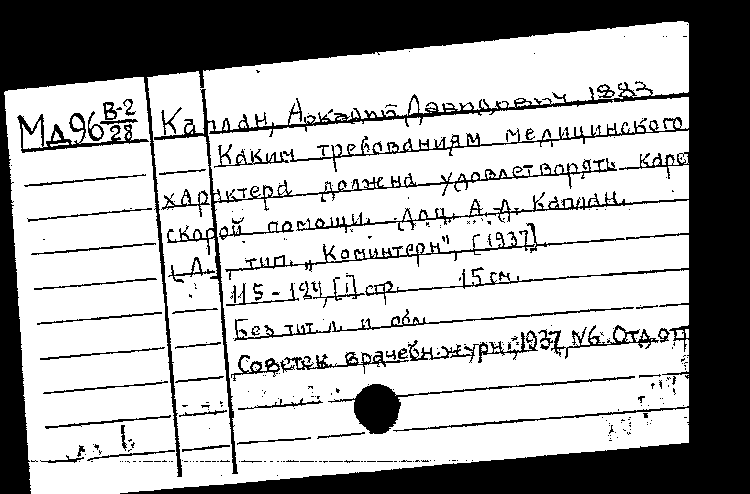 Мд96 В-2/28
Каплан, Аркадий Давидович, 1883
Каким требованиям медицинского
характера должна удовлетворять карет
скорой помощи. Доц. А. Д. Каплан.
[Л.], тип. „Коминтерн", [1937].
115-124, [1] стр. 15 см.
Без тит. л. и обл.
Советск. врачебн. журн., 1937, №6. Отд. отт